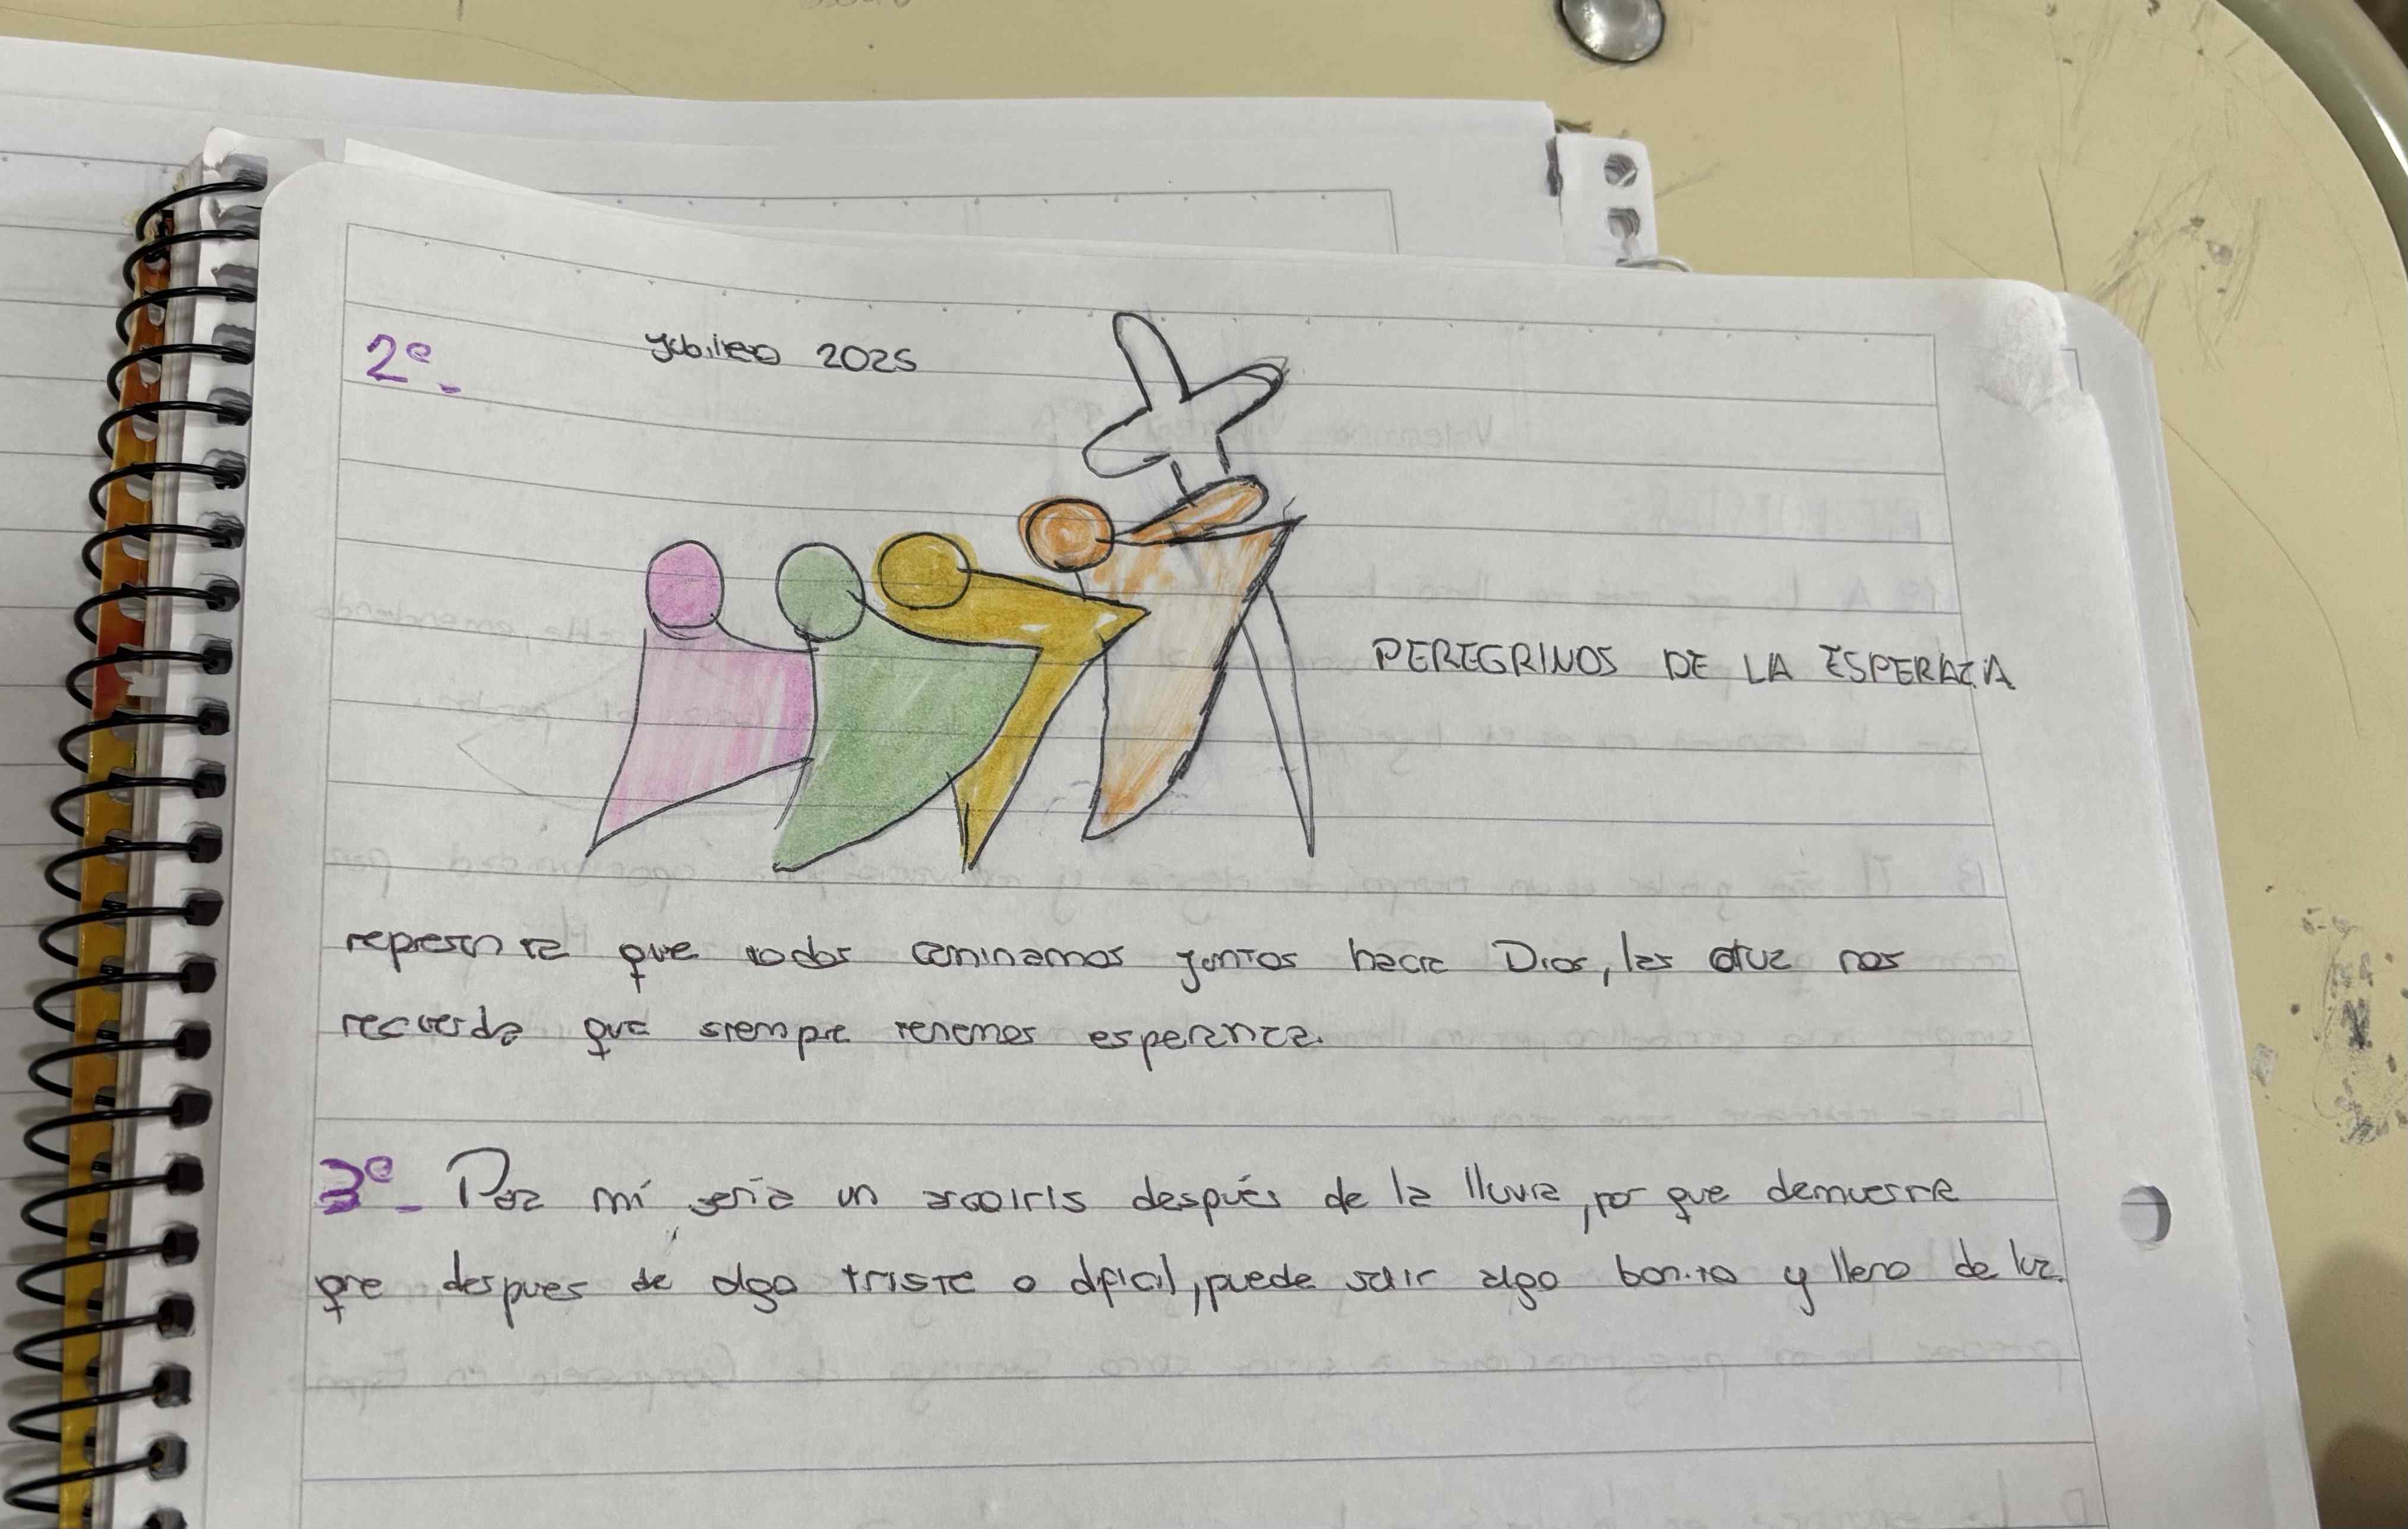 2º-
Jubileo 2025
PEREGRINOS DE LA ESPERAZA
representa que todos caminamos juntos hacia Dios, las cruz nos
recuerda que siempre tenemos esperanza.
3º- Para mí sería un arcoiris después de la lluvia, por que demuestra
que despues de algo triste o dificil, puede salir algo bonito y lleno de luz.